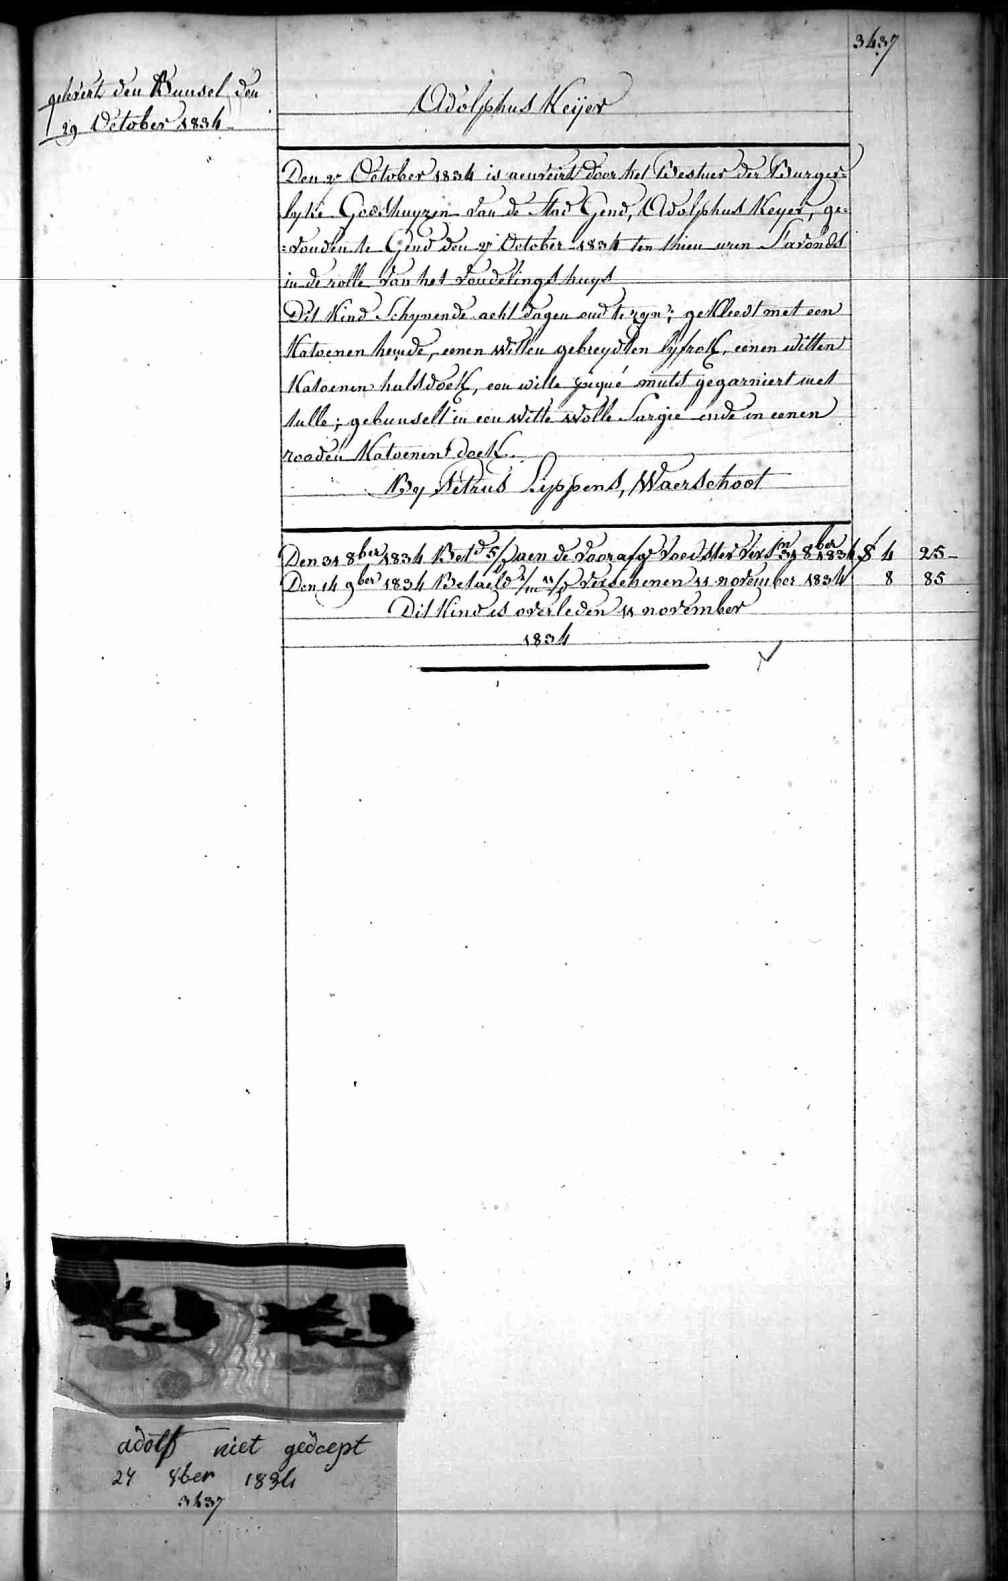 3437
gelevert den Bunsel den
29 October 1834
Adolphus Keyer
Den 27 October 1834 is aenveird door het Bestuer der Burger=
lyke Godshuyzen van de Stad Gend, Adolphus Keyer, ge=
=vonden te Gend den 27 October 1834 ten thien uren S'avonds
in de rolle van het vondelings huys
Dit Kind Schynende acht dagen oud te zyn; gekleedt met een
Katoenen hemde, eenen witten gebreydden lyfrok, eenen witten
Katoenen halsdoek, een witte piqué muts gegarniert met
tulle; gebunselt in een witte wolle Sargie ende in eenen
rooden Katoenen doek.
By Petrus Lippens, Waerschoot
Den 31 8ber 1834 Betd 5/ aen de voorafge voedster vers 31 8ber 1834 f 4 25
Den 14 9ber 1834 Betaeld verschenen 11 november 1834 8 85
Dit Kind is overleden 11 november
1834
adolf niet gedoept
27 8ber 1834
3437